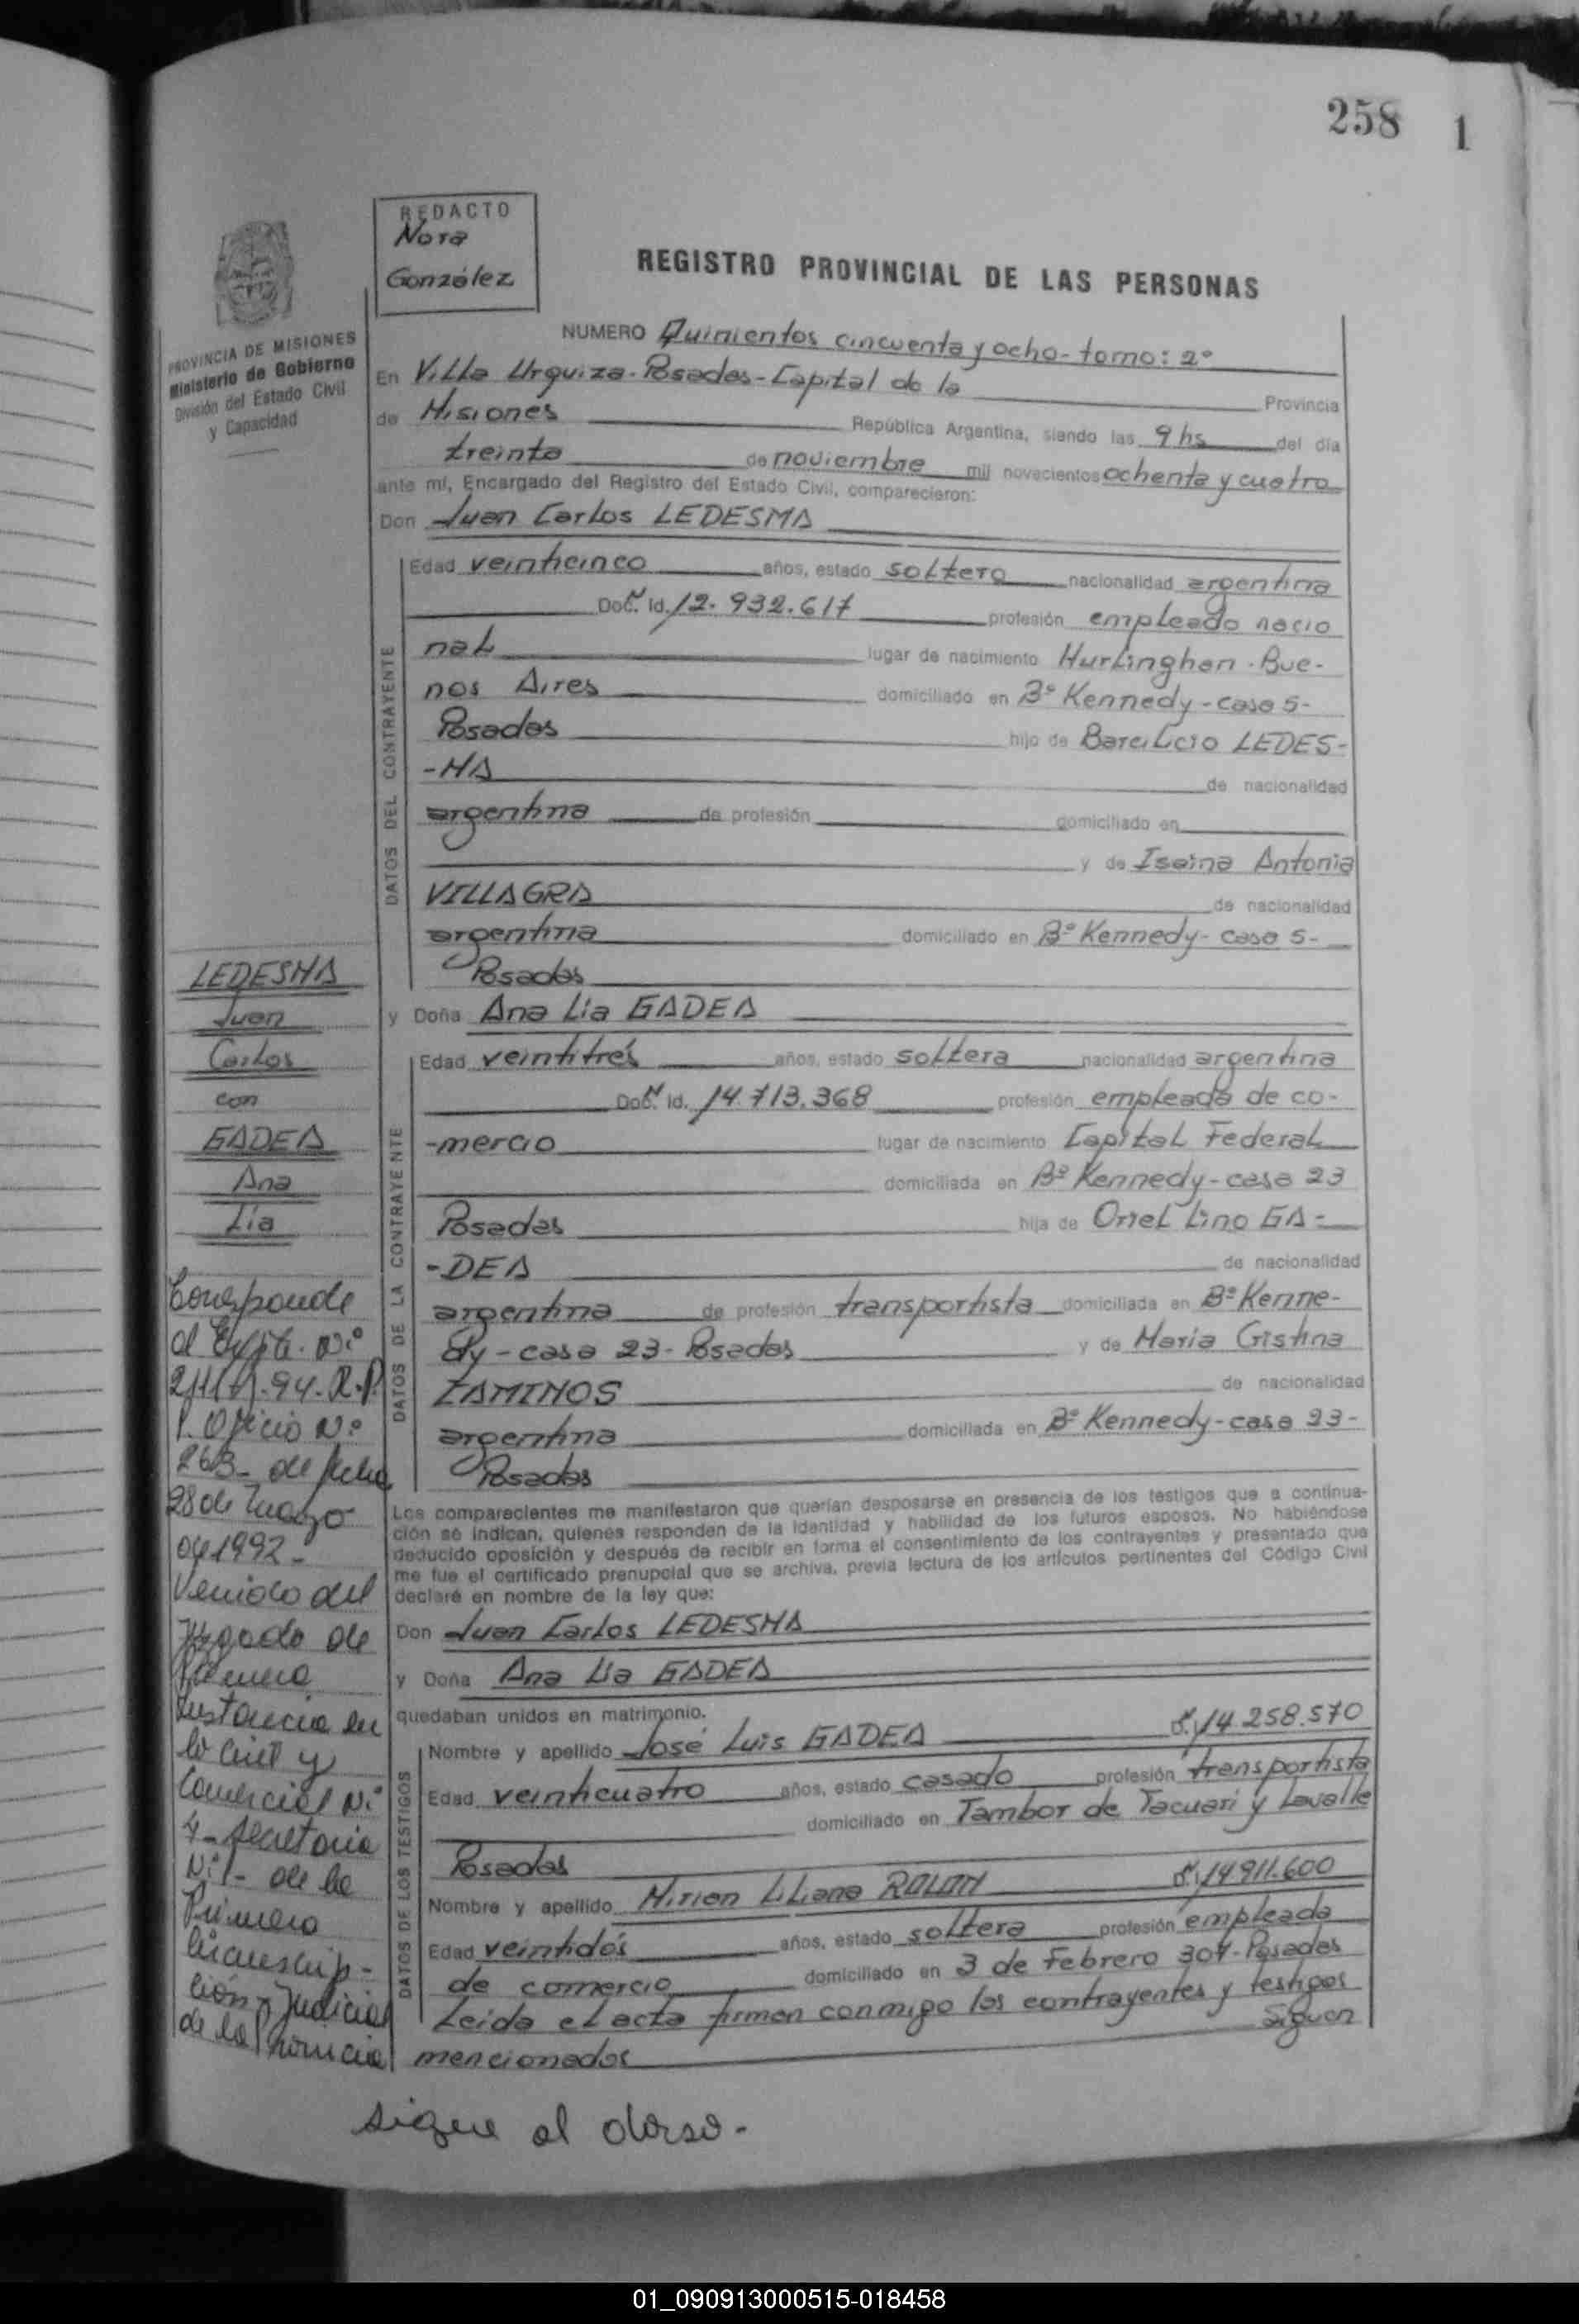 258 1
REDACTO
Nora
González
REGISTRO PROVINCIAL DE LAS PERSONAS
PROVINCIA DE MISIONES
Ministerio de Gobierno
División del Estado Civil
y Capacidad
NUMERO Quinientos cincuenta y ocho - tomo: 2º
En Villa Urquiza - Posadas - Capital de la Provincia
de Misiones República Argentina, siendo las 9 hs del día
treinta de noviembre mil novecientos ochenta y cuatro
ante mí, Encargado del Registro del Estado Civil, comparecieron:
Don Juan Carlos LEDESMA
DATOS DEL CONTRAYENTE
Edad veinticinco años, estado soltero nacionalidad argentina
Doc. Id. 12.932.617 profesión empleado nacio
nal lugar de nacimiento Hurlinghan - Bue-
nos Aires domiciliado en Bº Kennedy - casa 5-
Posadas hijo de Barcilicio LEDES-
-MA de nacionalidad
argentina de profesión domiciliado en
y de Isaina Antonia
VILLAGRA de nacionalidad
argentina domiciliado en Bº Kennedy - casa 5-
Posadas
y Doña Ana Lia GADEA
DATOS DE LA CONTRAYENTE
Edad veintitrés años, estado soltera nacionalidad argentina
Doc. Id. 14.713.368 profesión empleada de co-
-mercio lugar de nacimiento Capital Federal
domiciliada en Bº Kennedy - casa 23
Posadas hija de Oriel Lino GA-
-DEA de nacionalidad
argentina de profesión transportista domiciliada en Bº Kenne-
dy - casa 23 - Posadas y de Maria Cristina
ZAMINOS de nacionalidad
argentina domiciliada en Bº Kennedy - casa 23-
Posadas
Los comparecientes me manifestaron que querían desposarse en presencia de los testigos que a continua-
ción se indican, quienes responden de la identidad y habilidad de los futuros esposos. No habiéndose
deducido oposición y después de recibir en forma el consentimiento de los contrayentes y presentado que
me fue el certificado prenupcial que se archiva, previa lectura de los artículos pertinentes del Código Civil
declaré en nombre de la ley que:
Don Juan Carlos LEDESMA
y Doña Ana Lia GADEA
quedaban unidos en matrimonio.
DATOS DE LOS TESTIGOS
Nombre y apellido José Luis GADEA 14.258.570
Edad veinticuatro años, estado casado profesión transportista
domiciliado en Tambor de Tacuarí y Lavalle
Posadas
Nombre y apellido Mirian Liliana ROLON 14.911.600
Edad veintidós años, estado soltera profesión empleada
de comercio domiciliado en 3 de Febrero 307 - Posadas
Leida el acta firman conmigo los contrayentes y testigos
Siguen
mencionados
LEDESMA
Juan
Carlos
con
GADEA
Ana
Lía
Corresponde
al Expte. Nº
94 - R.P.
P. Oficio Nº
263 - de fecha
28 de Marzo
de 1992 -
Venido del
Juzgado de
Primera
Instancia en
lo Civil y
Comercial Nº
4 - Secretaria
Nº 1 - de la
Primera
Circunscrip-
ción Judicial
de la Provincia
sigue al dorso -
01_090913000515-018458